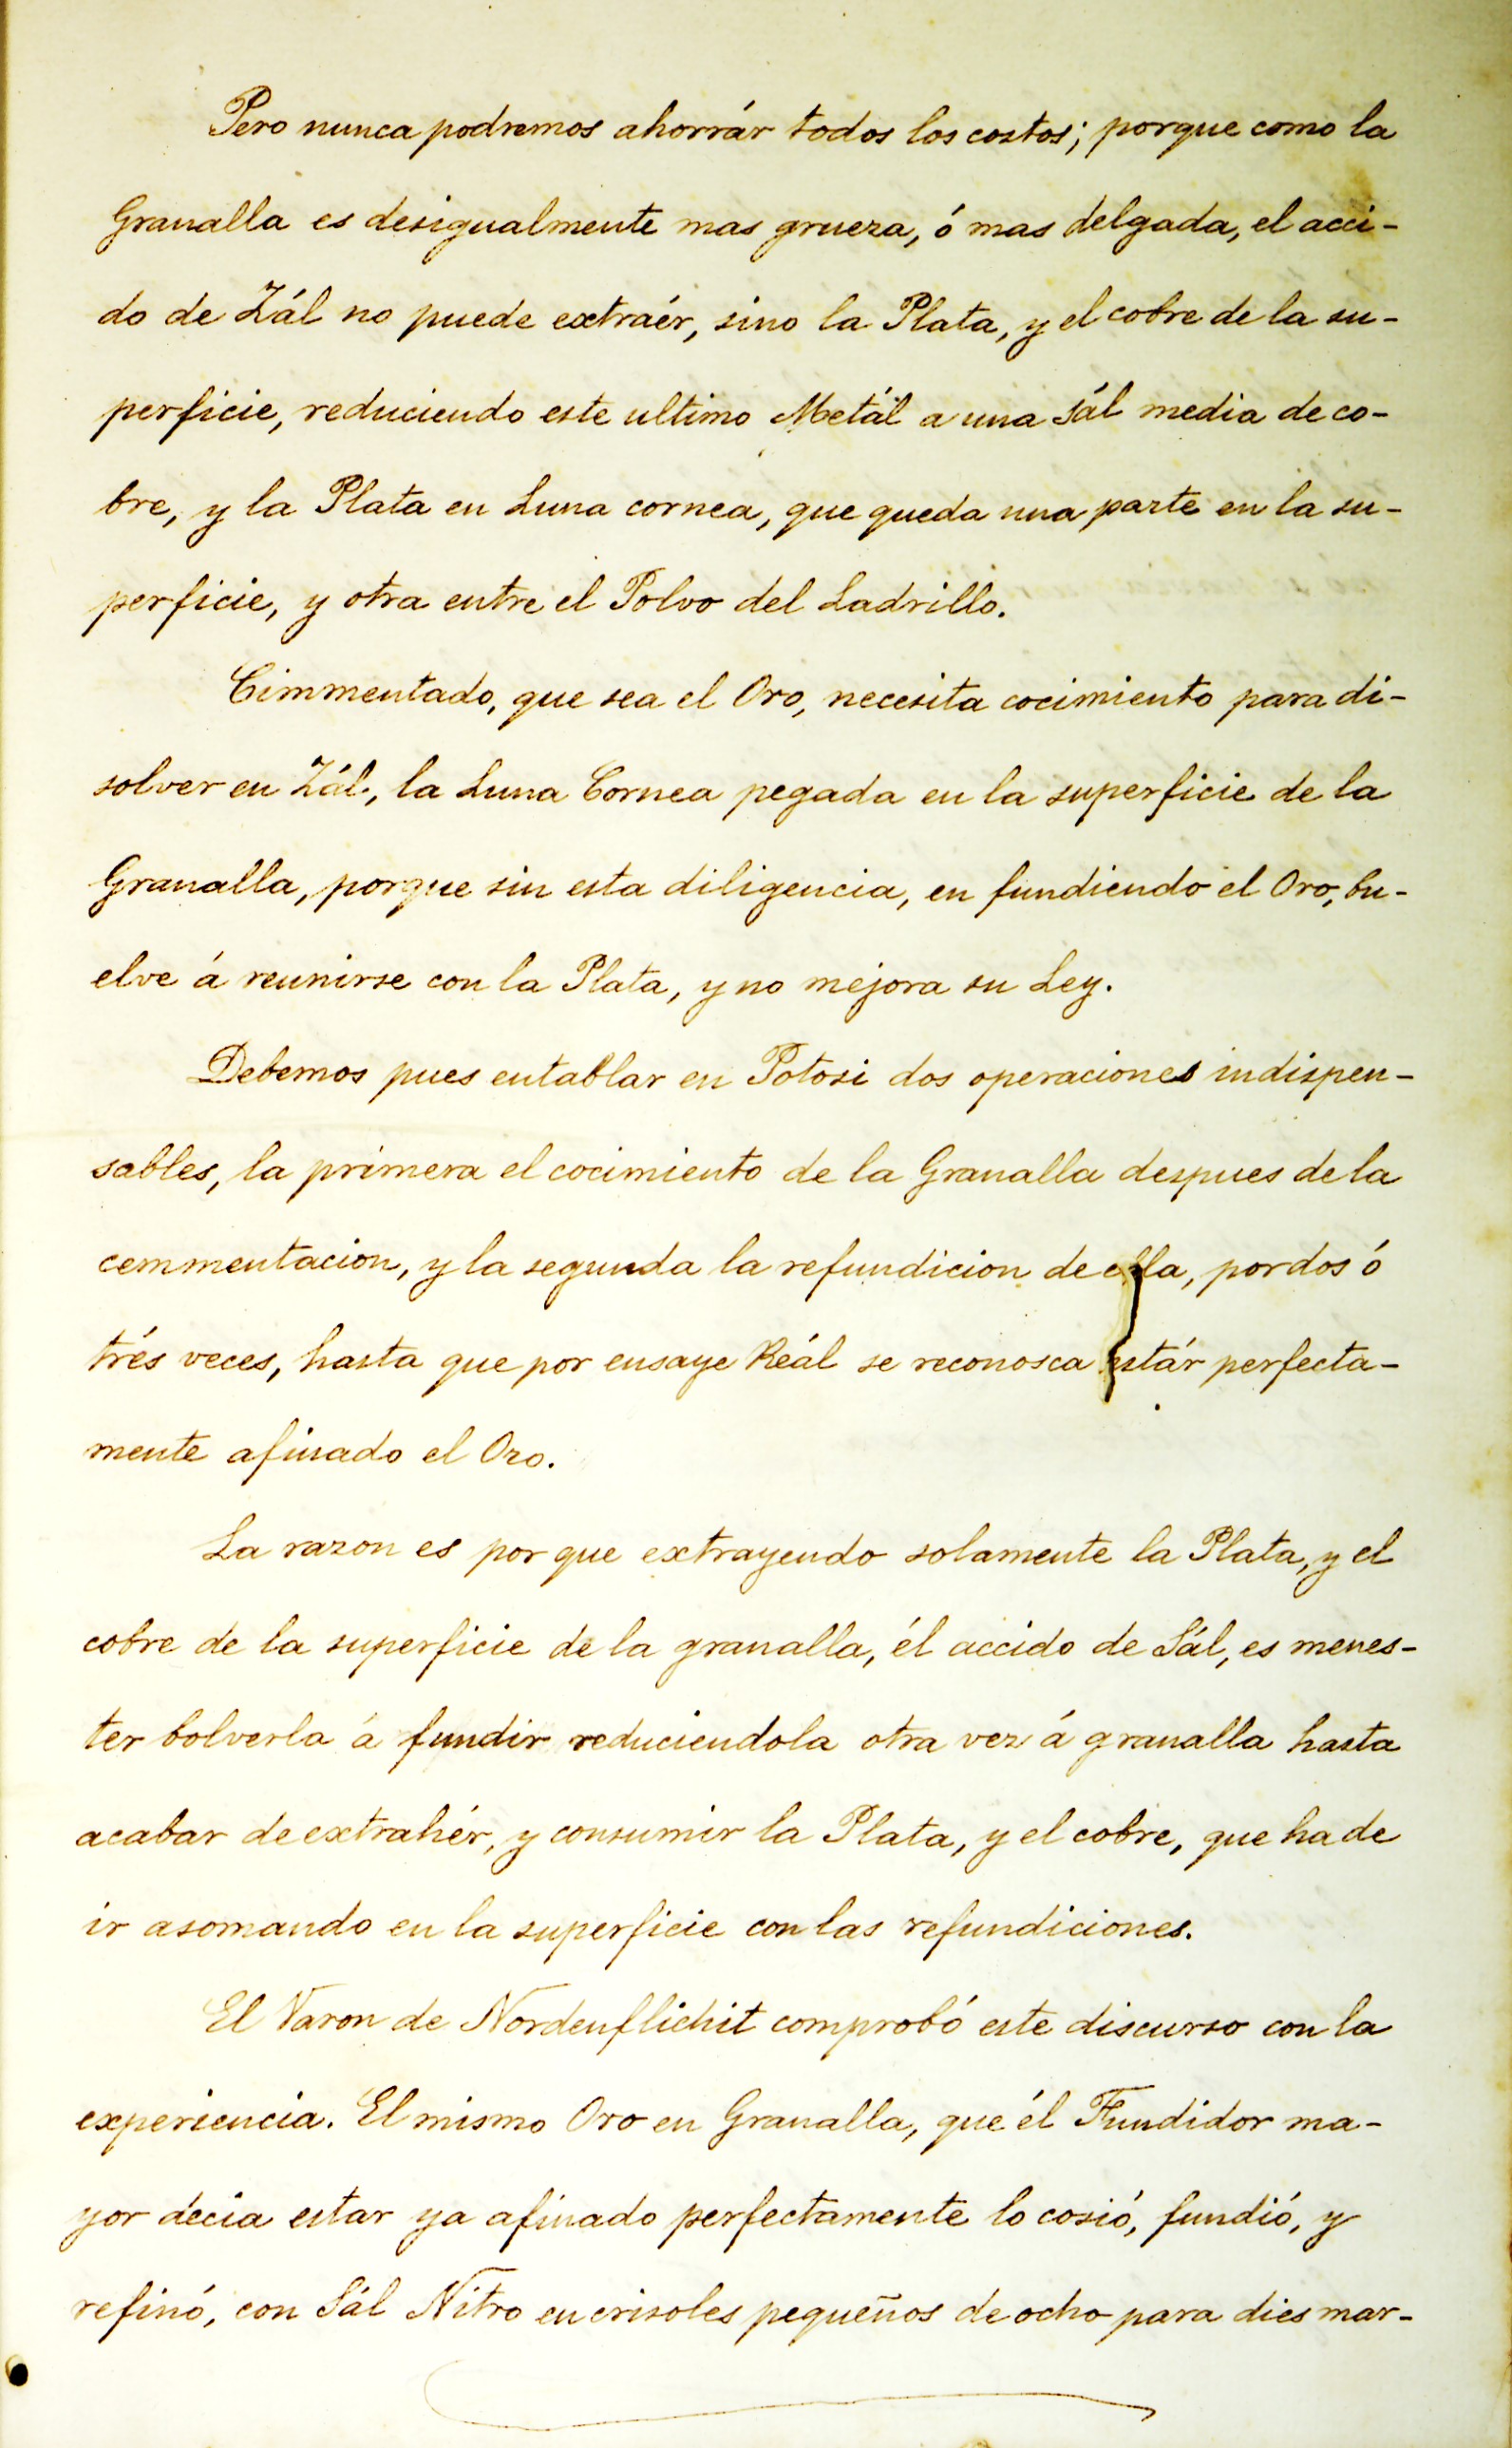 Pero nunca podremos ahorrár todos los costos; porque como la
Granalla es desigualmente mas grueza, ó mas delgada, el acci-
do de Zál no puede extraér, sino la Plata, y el cobre de la su-
perficie, reduciendo este ultimo Metál a una sál media de co-
bre, y la Plata en Luna cornea, que queda una parte en la su-
perficie, y otra entre el Polvo del Ladrillo.
Cimmentado, que sea el Oro, necesita cocimiento para di-
solver en Zál, la Luna Cornea pegada en la superficie de la
Granalla, porque sin esta diligencia, en fundiendo el Oro, bu-
elve á reunirse con la Plata, y no mejora su Ley.
Debemos pues entablar en Potosi dos operaciones indispen-
sables, la primera el cocimiento de la Granalla despues de la
cemmentacion, y la segunda la refundicion de ella, por dos ó
trés veces, hasta que por ensaye Reál se reconosca estár perfecta-
mente afinado el Oro.
La razon es por que extrayendo solamente la Plata, y el
cobre de la superficie de la granalla, él accido de Sál, es menes-
ter bolverla á fundir reduciendola otra vez á granalla hasta
acabar de extrahér, y consumir la Plata, y el cobre, que ha de
ir asomando en la superficie con las refundiciones.
El Varon de Nordenflichit comprobó este discurso con la
experiencia. El mismo Oro en Granalla, que él Fundidor ma-
yor decia estar ya afinado perfectamente lo cosió, fundió, y
refinó, con Sál Nitro en crisoles pequeños de ocho para dies mar-